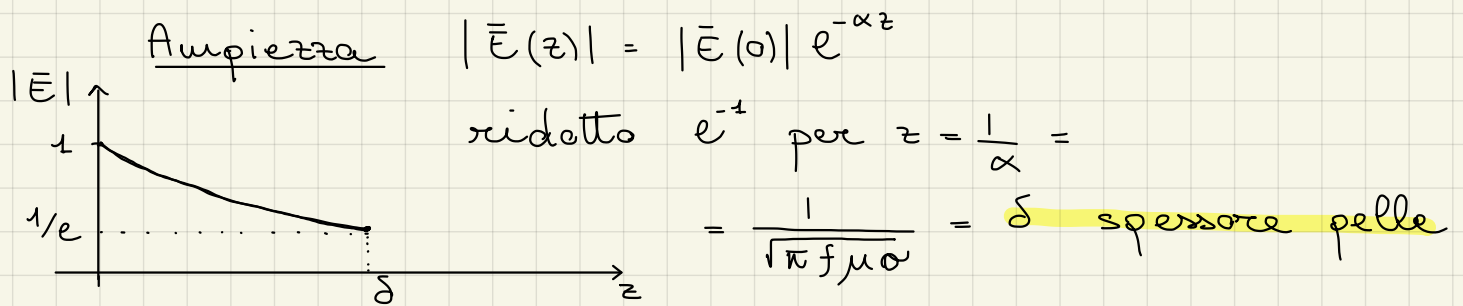 Ampiezza |Ē(z)| = |Ē(0)| e^{-αz}
|Ē|
ridotto e^{-1} per z = 1/α =
1
= 1/√(π f μ σ) = δ spessore pelle
1/e
δ z